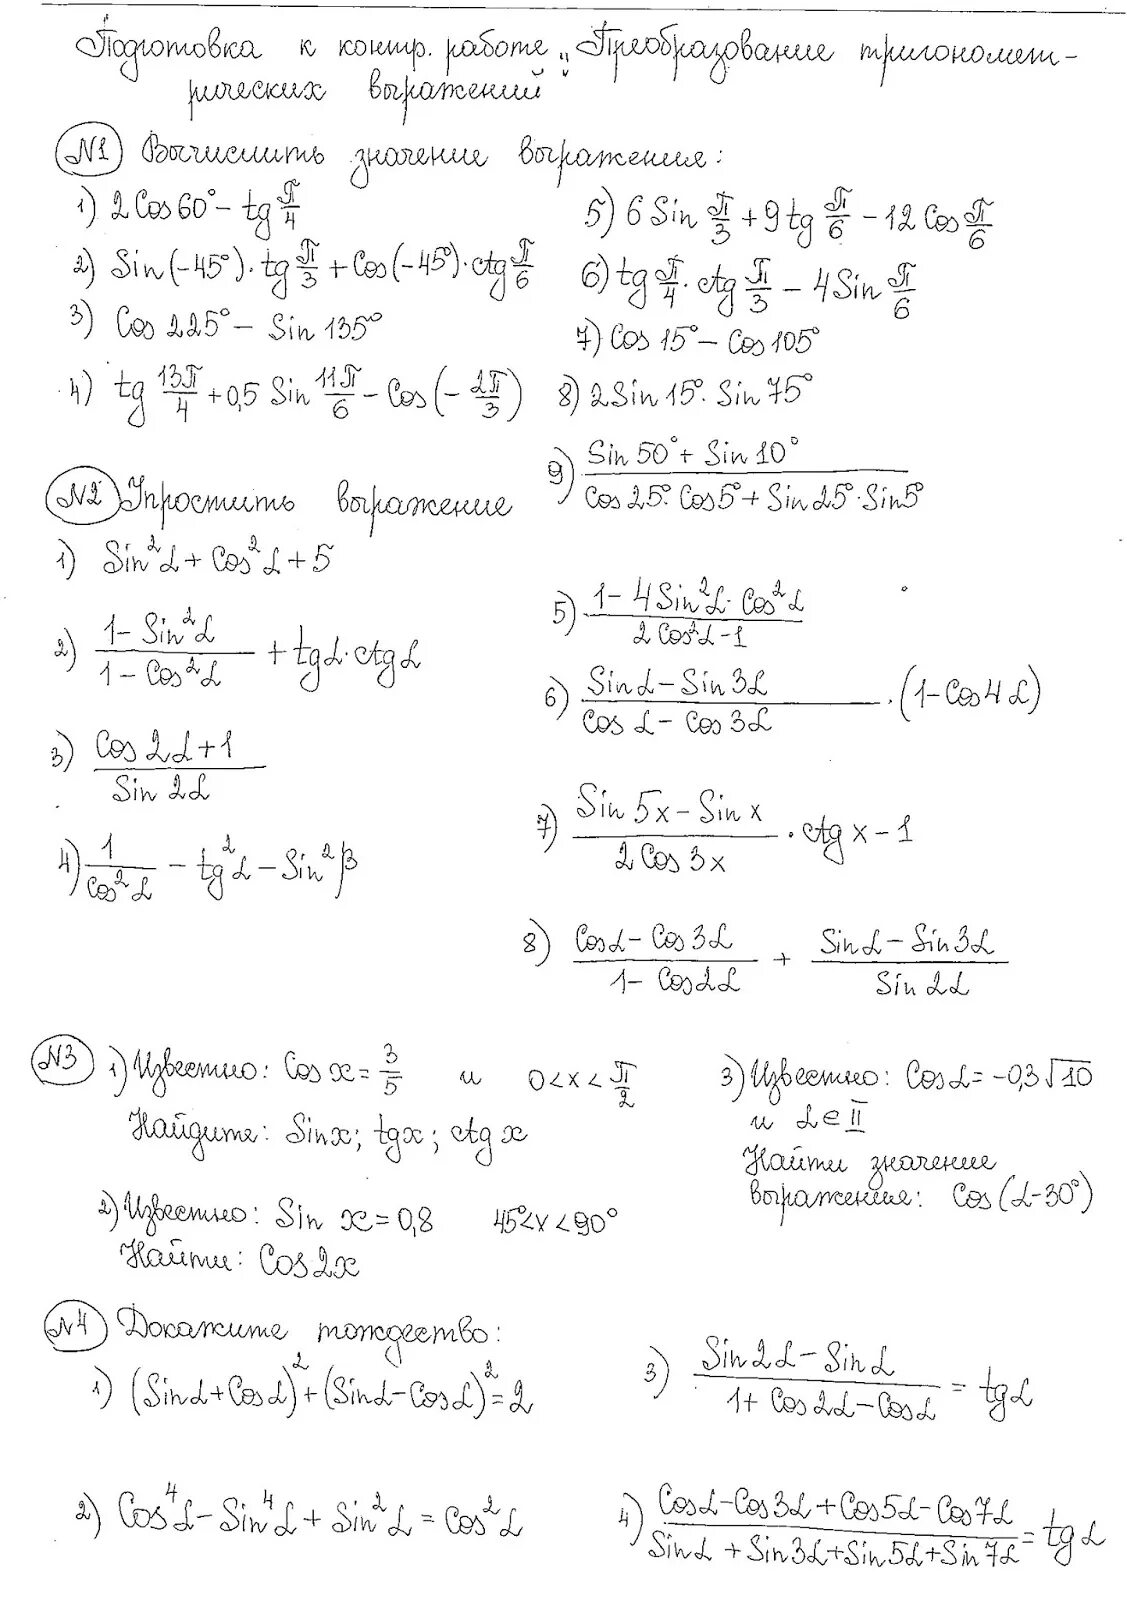 Подготовка к контр. работе „Преобразование тригономет-
рических выражений"
№1 Вычислить значение выражения:
1) 2Cos60° - tg π/4
2) Sin(-45°)·tg π/3 + Cos(-45°)·ctg π/6
3) Cos 225° - Sin 135°
4) tg 13π/4 + 0,5 Sin 11π/6 - Cos(- 2π/3)
5) 6 Sin π/3 + 9 tg π/6 - 12 Cos π/6
6) tg π/4 · ctg π/3 - 4Sin π/6
7) Cos 15° - Cos 105°
8) 2Sin 15° · Sin 75°
9) (Sin 50° + Sin 10°)/(Cos 25° · Cos 5° + Sin 25° · Sin 5°)
№2 Упростить выражение
1) Sin²α + Cos²α + 5
2) (1 - Sin²α)/(1 - Cos²α) + tgα · ctgα
3) (Cos 2α + 1)/(Sin 2α)
4) 1/(Cos²α) - tg²α - Sin²β
5) (1 - 4Sin²α · Cos²α)/(2Cos²α - 1)
6) (Sinα - Sin 3α)/(Cos α - Cos 3α) · (1 - Cos 4α)
7) (Sin 5x - Sin x)/(2 Cos 3x) · ctg x - 1
8) (Cosα - Cos 3α)/(1 - Cos 2α) + (Sinα - Sin 3α)/(Sin 2α)
№3 1) Известно: Cos x = 3/5 и 0 < x < π/2
Найдите: Sinx; tgx; ctg x
2) Известно: Sin x = 0,8 45° < x < 90°
Найти: Cos 2x
3) Известно: Cosα = -0,3√10
и α ∈ II
Найти значение
выражения: Cos(α-30°)
№4 Докажите тождество:
1) (Sinα + Cosα)² + (Sinα - Cosα)² = 2
2) Cos⁴α - Sin⁴α + Sin²α = Cos²α
3) (Sin 2α - Sinα)/(1 + Cos 2α - Cosα) = tgα
4) (Cosα - Cos 3α + Cos 5α - Cos 7α)/(Sinα + Sin 3α + Sin 5α + Sin 7α) = tgα